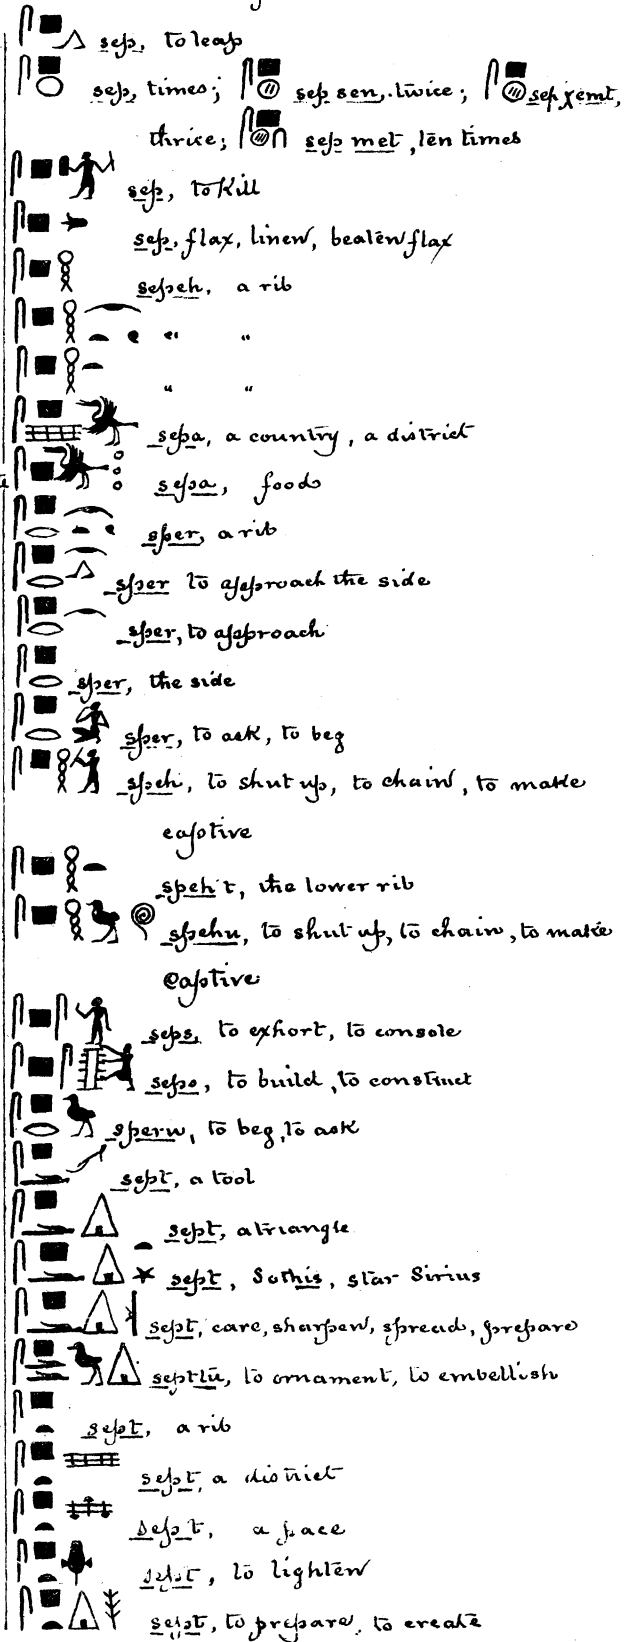 sep, to leap
sep, times; sep sen, twice; sep χemt,
thrice; sep met, ten times
sep, to kill
sep, flax, linen, beaten flax
sepeh, a rib
" "
" "
sepa, a country, a district
sepa, food
sper, a rib
sper to approach the side
sper, to approach
sper, the side
sper, to ask, to beg
speh, to shut up, to chain, to make
captive
speh't, the lower rib
spehu, to shut up, to chain, to make
captive
seps, to exhort, to console
seps, to build, to construct
speru, to beg, to ask
sept, a tool
sept, a triangle
sept, Sothis, star Sirius
sept, care, sharpen, spread, prepare
septtu, to ornament, to embellish
sept, a rib
sept, a district
sept, a face
sept, to lighten
sept, to prepare, to create